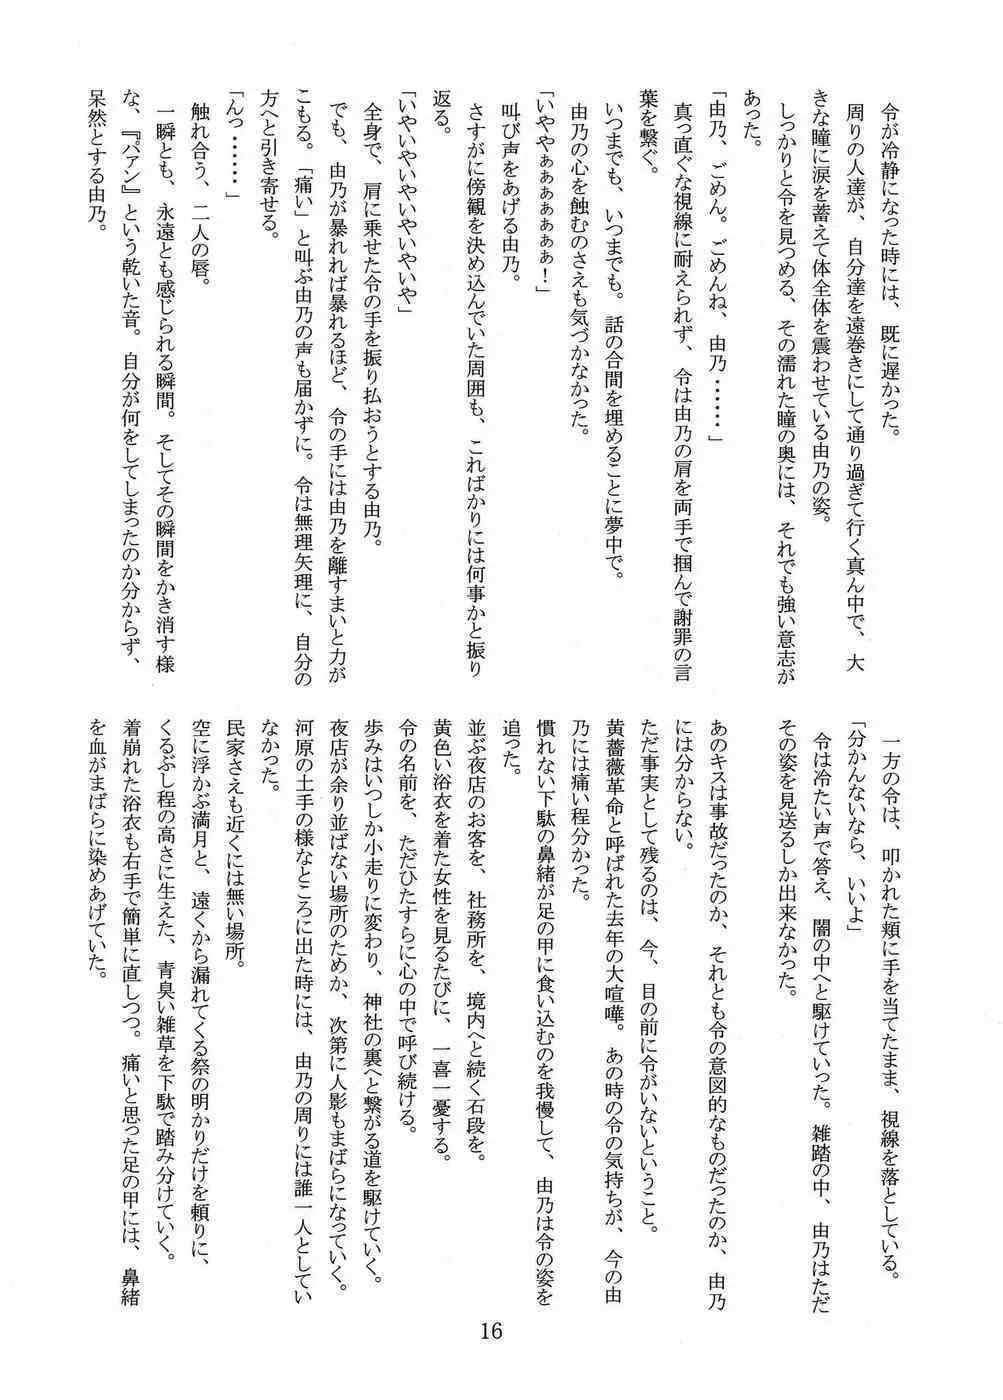 令が冷静になった時には、既に遅かった。
周りの人達が、自分達を遠巻きにして通り過ぎて行く真ん中で、大
きな瞳に涙を蓄えて体全体を震わせている由乃の姿。
しっかりと令を見つめる、その濡れた瞳の奥には、それでも強い意志が
あった。
「由乃、ごめん。ごめんね、由乃……」
真っ直ぐな視線に耐えられず、令は由乃の肩を両手で掴んで謝罪の言
葉を繋ぐ。
いつまでも、いつまでも。話の合間を埋めることに夢中で。
由乃の心を蝕むのさえも気づかなかった。
「いややぁぁぁぁぁぁぁ！」
叫び声をあげる由乃。
さすがに傍観を決め込んでいた周囲も、こればかりには何事かと振り
返る。
「いやいやいやいやいやいや」
全身で、肩に乗せた令の手を振り払おうとする由乃。
でも、由乃が暴れれば暴れるほど、令の手には由乃を離すまいと力が
こもる。「痛い」と叫ぶ由乃の声も届かずに。令は無理矢理に、自分の
方へと引き寄せる。
「んっ……」
触れ合う、二人の唇。
一瞬とも、永遠とも感じられる瞬間。そしてその瞬間をかき消す様
な、『パァン』という乾いた音。自分が何をしてしまったのか分からず、
呆然とする由乃。
一方の令は、叩かれた頬に手を当てたまま、視線を落としている。
「分かんないなら、いいよ」
令は冷たい声で答え、闇の中へと駆けていった。雑踏の中、由乃はただ
その姿を見送るしか出来なかった。
あのキスは事故だったのか、それとも令の意図的なものだったのか、由乃
には分からない。
ただ事実として残るのは、今、目の前に令がいないということ。
黄薔薇革命と呼ばれた去年の大喧嘩。あの時の令の気持ちが、今の由
乃には痛い程分かった。
慣れない下駄の鼻緒が足の甲に食い込むのを我慢して、由乃は令の姿を
追った。
並ぶ夜店のお客を、社務所を、境内へと続く石段を。
黄色い浴衣を着た女性を見るたびに、一喜一憂する。
令の名前を、ただひたすらに心の中で呼び続ける。
歩みはいつしか小走りに変わり、神社の裏へと繋がる道を駆けていく。
夜店が余り並ばない場所のためか、次第に人影もまばらになっていく。
河原の土手の様なところに出た時には、由乃の周りには誰一人としてい
なかった。
民家さえも近くには無い場所。
空に浮かぶ満月と、遠くから漏れてくる祭の明かりだけを頼りに、
くるぶし程の高さに生えた、青臭い雑草を下駄で踏み分けていく。
着崩れた浴衣も右手で簡単に直しつつ。痛いと思った足の甲には、鼻緒
を血がまばらに染めあげていた。
16